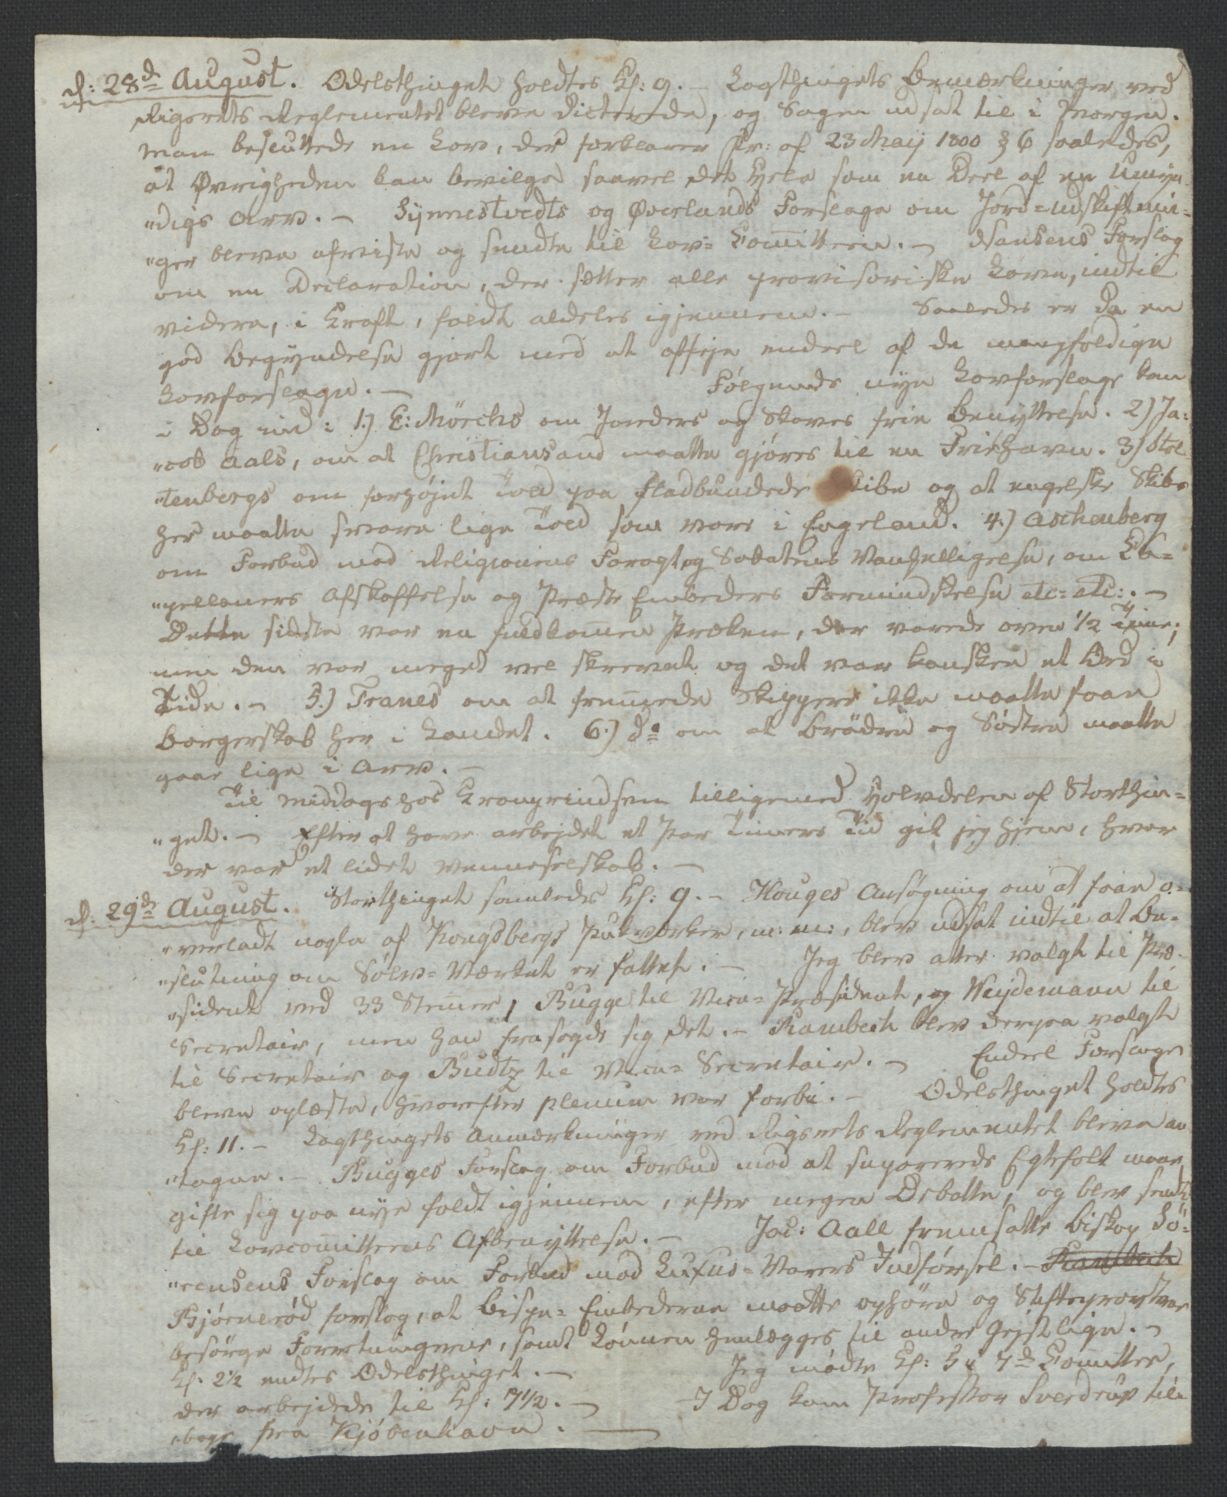 d: 28de August. Odelsthinget holdtes Kl: 9. – Lagthingets Bemærkninger ved
Rigsrets Reglementet bleve dicterede, og Sagen udsat til i Morgen.
Man besluttede en Lov, der forklarer Fr: af 23 Maij 1800 § 6 saaledes,
at Øvrigheden kan bevilge saavel det hele som en Deel af en Umyn-
"digs Arv. – Synnestvedts og Øverlands Forslage om Jord-udskiftnin-
"ger bleve afviste og sendte til Lov-Comitteen. – Forslag
om en Declaration, der sætter alle provisoriske Love, indtil
videre, i Kraft, faldt aldeles igjennem. – Saaledes er da en
god Begyndelse gjort med at affeje endeel af de mangfoldige
Lovforslage. – Følgende nye Lovforslage kom
i Dag ind: 1.) E: Mörchs om Jorders og Skoves frie Benyttelse. 2) Ja-
"cob Aals, om at Christiansand maatte gjøres til en Friehavn. 3) Stol-
"tenbergs om forhøjet Told paa fladbundede Skibe og at engelske Skibe
her maatte svare lige Told som vore i Engeland. 4.) Aschenberg
om Forbud mod Religionens Foragt og Sabatens Vanhelligelse, om Ka-
"pellaners Afskaffelse og Præste Embeders Formindskelse etc: etc:. –
Dette sidste var en fuldkommen Præken, der varede over 1/2 Time;
men den var meget vel skrevet og det var kanskee et Ord i
Tide. – 5.) Tranes om at fremmede Skippere ikke maatte faae
Borgerskab her i Landet. 6.) do om at Brødre og Søstre maatte
gaae lige i Arv. –
Til Middags hos Kronprindsen tilligemed Halvdelen af Storthin-
"get. – Efter at have arbejdet et Par Timers Tid gik jeg hjem, hvor
der var et lidet Venneselskab. –
d: 29de August. Storthinget samledes Kl: 9. – Houges Ansøgning om at faae o-
"verladt nogle af Kongsbergs Pukværker, m: m:, blev udsat indtil at Be-
"slutning om Sølv-Værket er fattet. – Jeg blev atter valgt til Præ-
"sident ved 33 Stemer, Bugge til Vice-Præsident, og Weydemann til
Secretair, men han frasagde sig det. – Rambech blev derpaa valgt
til Secretair og Budtz til Vice-Secretair. – Endeel Forslage
bleve oplæste, hvorefter plenum var forbi. – Odelsthinget holdtes
Kl: 11. – Lagthingets Anmærkninger ved Rigsrets Reglementet bleve an-
"tagne. – Bugges Forslag om Forbud mod at separerede Egtefolk maae
gifte sig paa nye faldt igjennem, efter megen Debatte, og blev sendt
til Lovcomitteens Afbenyttelse. – Jac: Aall fremsatte Biskop Sö-
"rensens Forslag om Forbud mod Luxus-Varers Indførsel. – Rambech
Bjørnerød forslog, at Bispe-Embederne maatte ophöre og Stiftsprovster
besörge Forretningerne, samt Lönnen henlægges til andre Gejstlige. –
Kl: 2½ endtes Odelsthinget. – Jeg mødte Kl: 5 i 7de Comittee,
der arbejdede til Kl: 7½. – I Dag kom Professor Sverdrup til-
"bage fra Kjöbenhavn. –